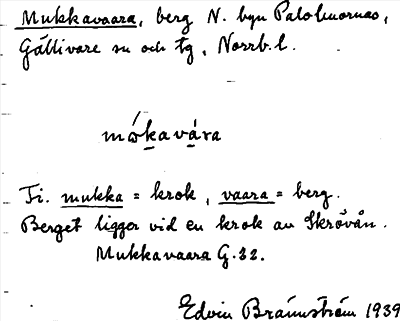 Mukkavaara, berg N. byn Palohuornas,
Gällivare sn och tg, Norrb. l.
mώkavára
Fi. mukka = krok, vaara = berg.
Berget ligger vid en krok av Skrövån.
Mukkavaara G.32.
Edvin Brännström 1939